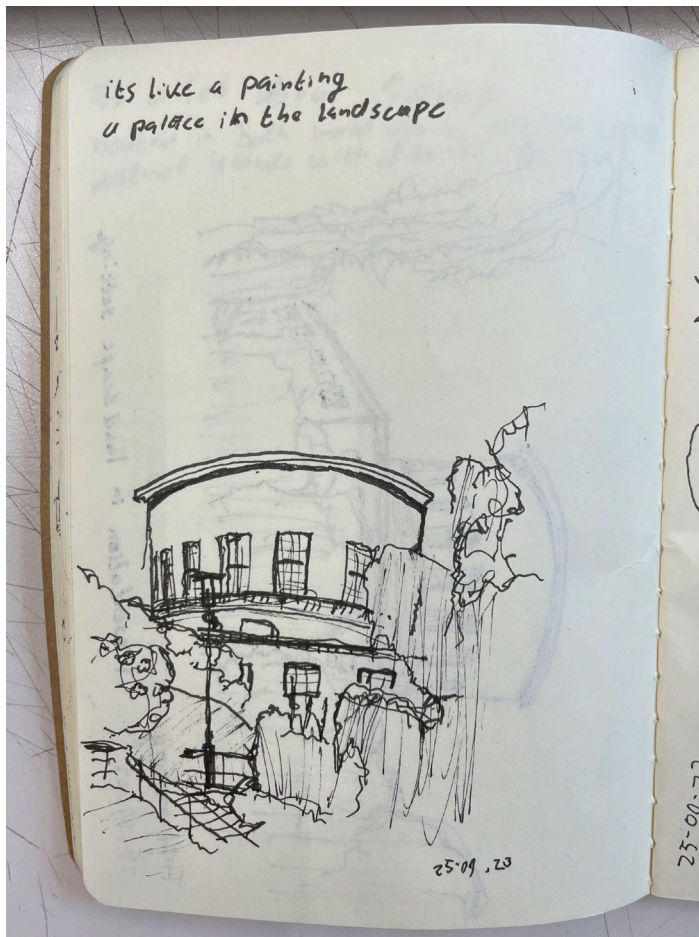 its like a painting
a palace in the landscape
25.09.23